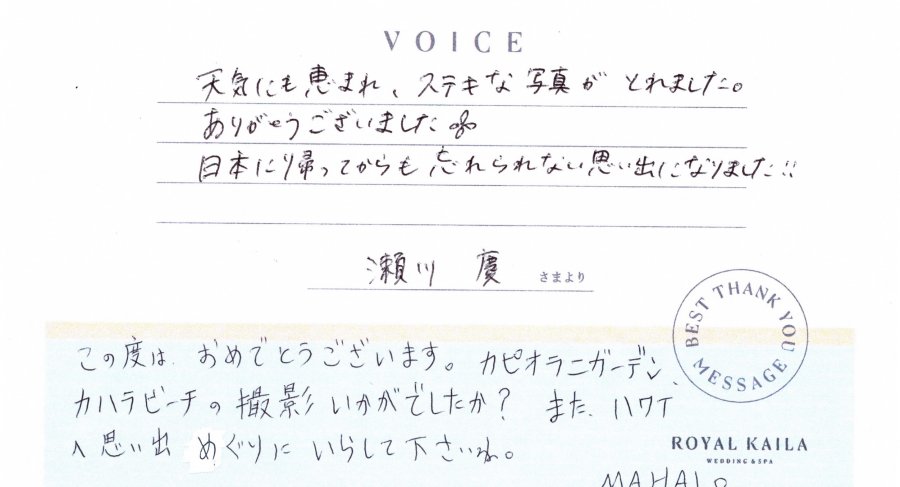 VOICE
天気にも恵まれ、ステキな写真がとれました。
ありがとうございました
日本に帰ってからも忘れられない思い出になりました!!
瀬川 慶 さまより
BEST THANK YOU MESSAGE
この度は、おめでとうございます。カピオラニガーデン、
カハラビーチの撮影いかがでしたか? また、ハワイ
へ思い出めぐりにいらして下さいね。
ROYAL KAILA
WEDDING & SPA
MAHALO